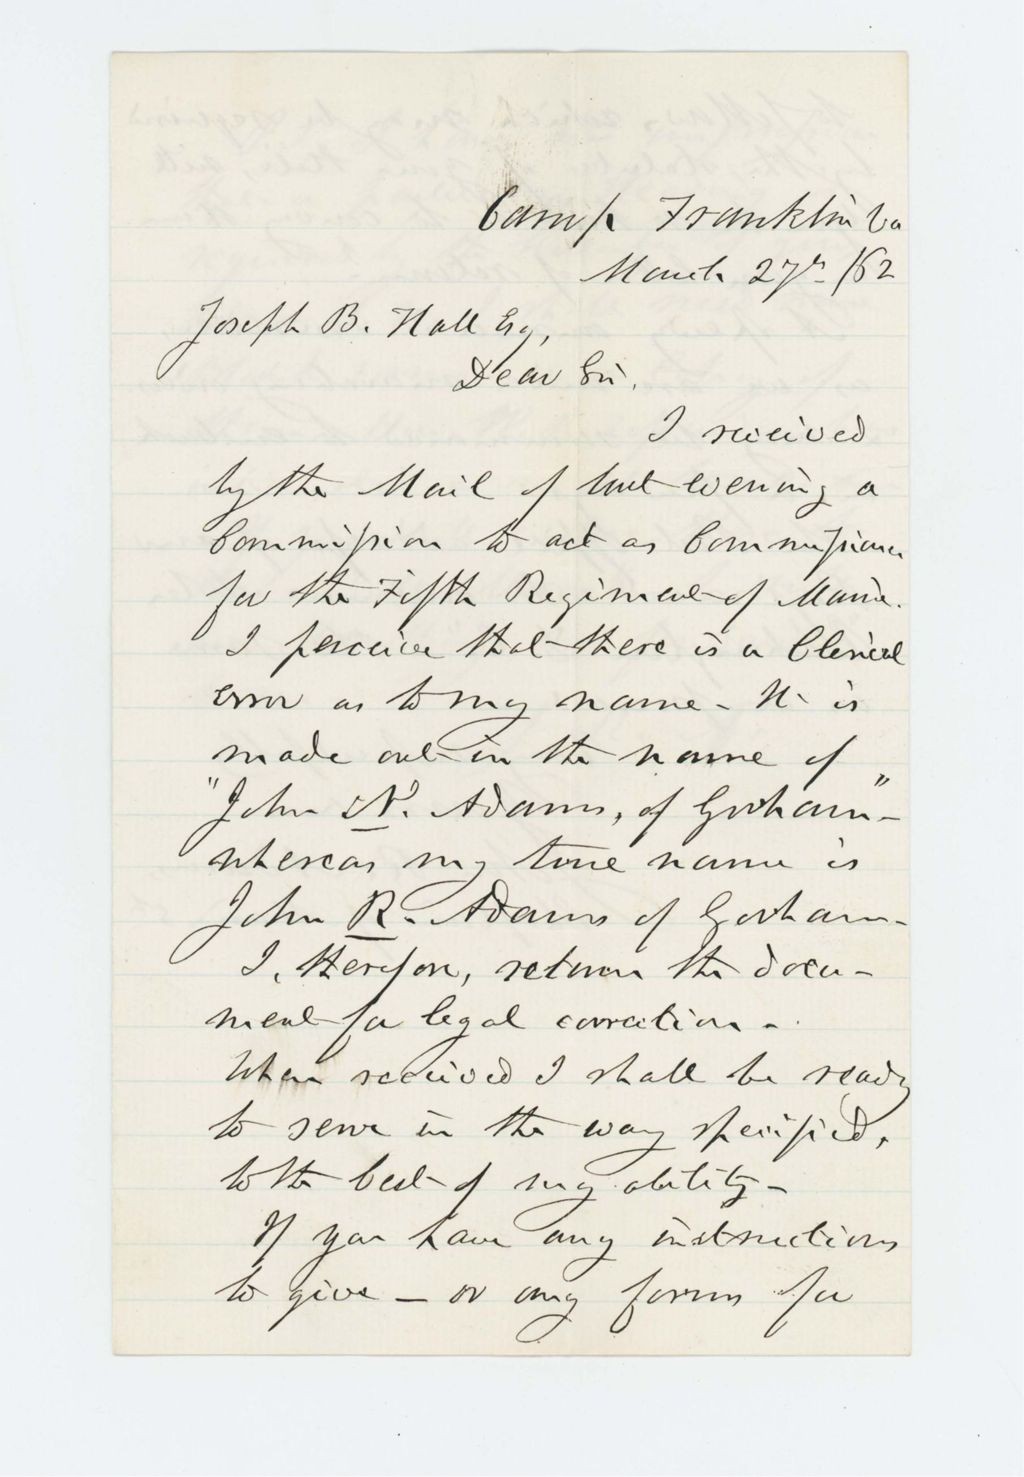 Camp Franklin Va
March 27th /62
Joseph B. Hall Esq,
Dear Sir,
I received
by the Mail of last evening a
Commission to act as Commissioner
for the Fifth Regiment of Maine.
I perceive that there is a Clerical
error as to my name - It is
made out in the name of
"John N. Adams, of Gorham" -
whereas my true name is
John R. Adams of Gorham -
I, therefore, return the docu-
ment for legal correction -
When received I shall be ready
to serve in the way specified,
to the best of my ability -
If you have any instructions
to give - or any forms for